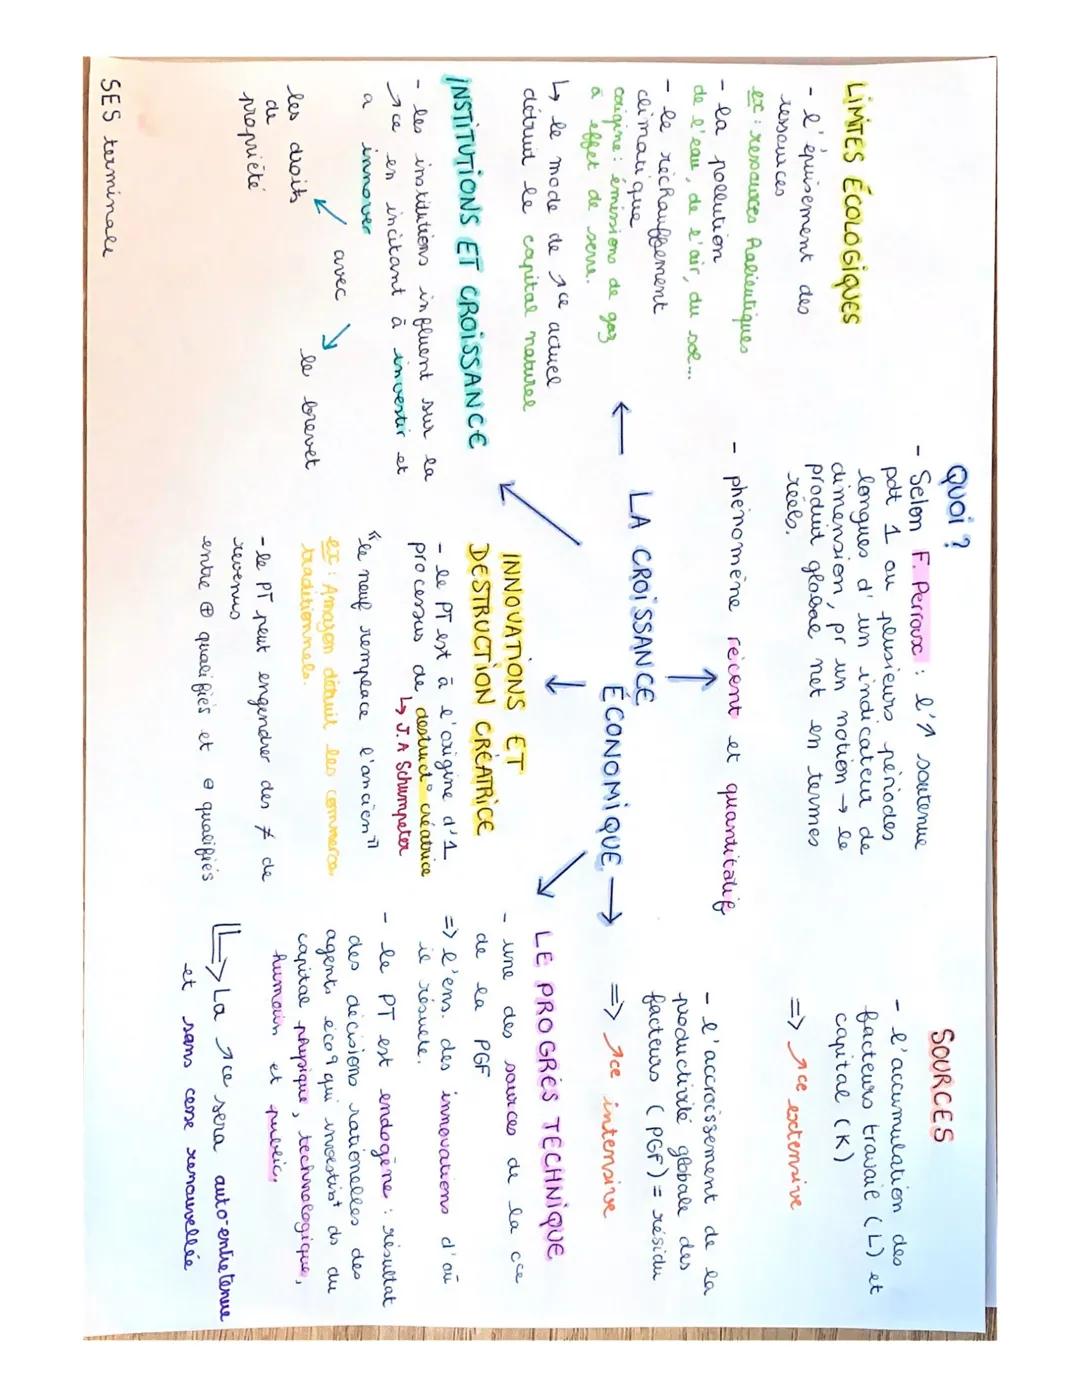 QUOI ?
- Selon F. Perroux : l'↗ soutenue
pdt 1 ou plusieurs périodes
longues d'un indicateur de
dimension, pr un notion → le
produit global net en termes
réels.
- phénomène récent et quantitatif
LA CROISSANCE
ÉCONOMIQUE
SOURCES
- l'accumulation des
facteurs travail (L) et
capital (K)
=> ↗ce extensive
- l'accroissement de la
productivité globale des
facteurs (PGF) = résidu
=> ↗ce intensive
LIMITES ÉCOLOGIQUES
- l'épuisement des
ressources
ex : ressources halieutiques
- la pollution
de l'eau, de l'air, du sol...
- le réchauffement
climatique
origine : émissions de gaz
à effet de serre.
↳ le mode de ↗ce actuel
détruit le capital naturel
INSTITUTIONS ET CROISSANCE
- les institutions influent sur la
↗ce en incitant à investir et
a innover
avec
les droits
de
propriété
le brevet
INNOVATIONS ET
DESTRUCTION CRÉATRICE
- le PT est à l'origine d'1
processus de destruct° créatrice
↳ J.A Schumpeter
"le neuf remplace l'ancien"
ex : Amazon détruit les commerces
traditionnels.
- le PT peut engendrer des ≠ de
revenus
entre ⊕ qualifiés et ⊖ qualifiés
LE PROGRÈS TECHNIQUE
- une des sources de la cce
de la PGF
=> l'ens. des innovations d'où
il résulte.
- le PT est endogène : résultat
des décisions rationelles des
agents écoq qui investist ds du
capital physique, technologique,
humain et public.
↳ La ↗ce sera auto-entretenue
et sans cesse renouvellée
SES terminale